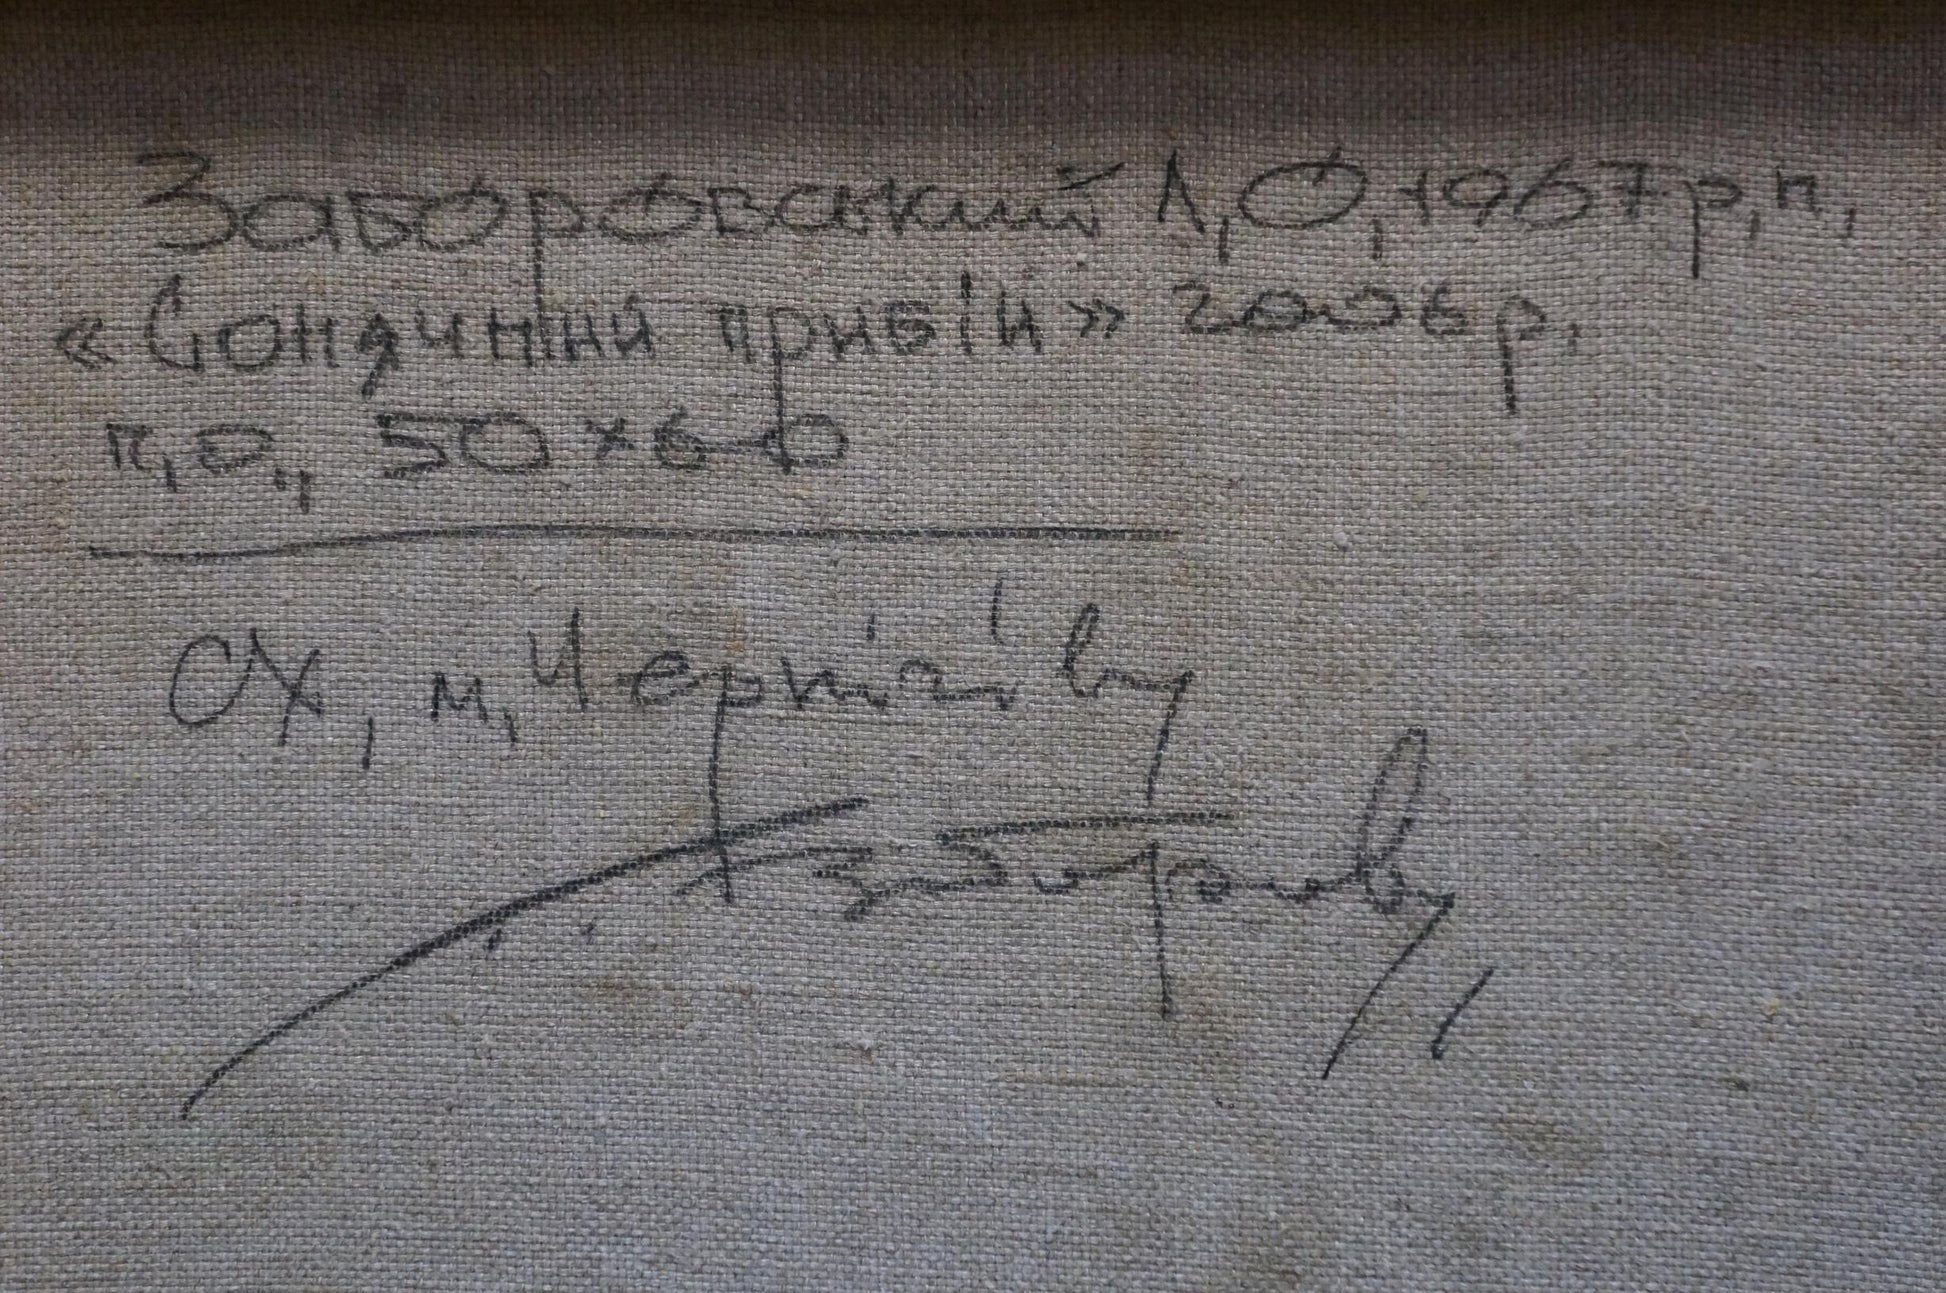 Заборовський Л, О, 1967 р, н,
« Сонячний прибій » 2006 р.
п, о., 50 х 60
СХ, м, Чернігів